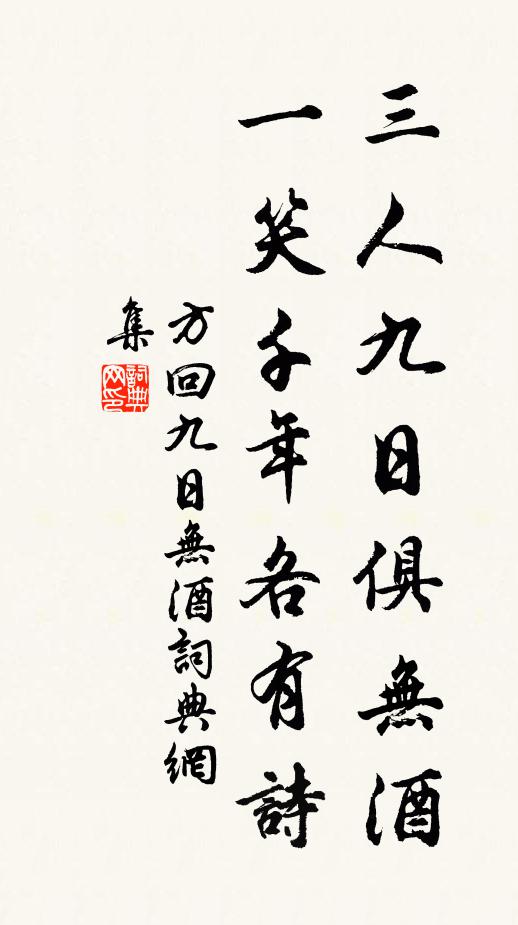 三人九日俱無酒
一笑千年各有詩
方回九日無酒詞典網
集
詞典
网印